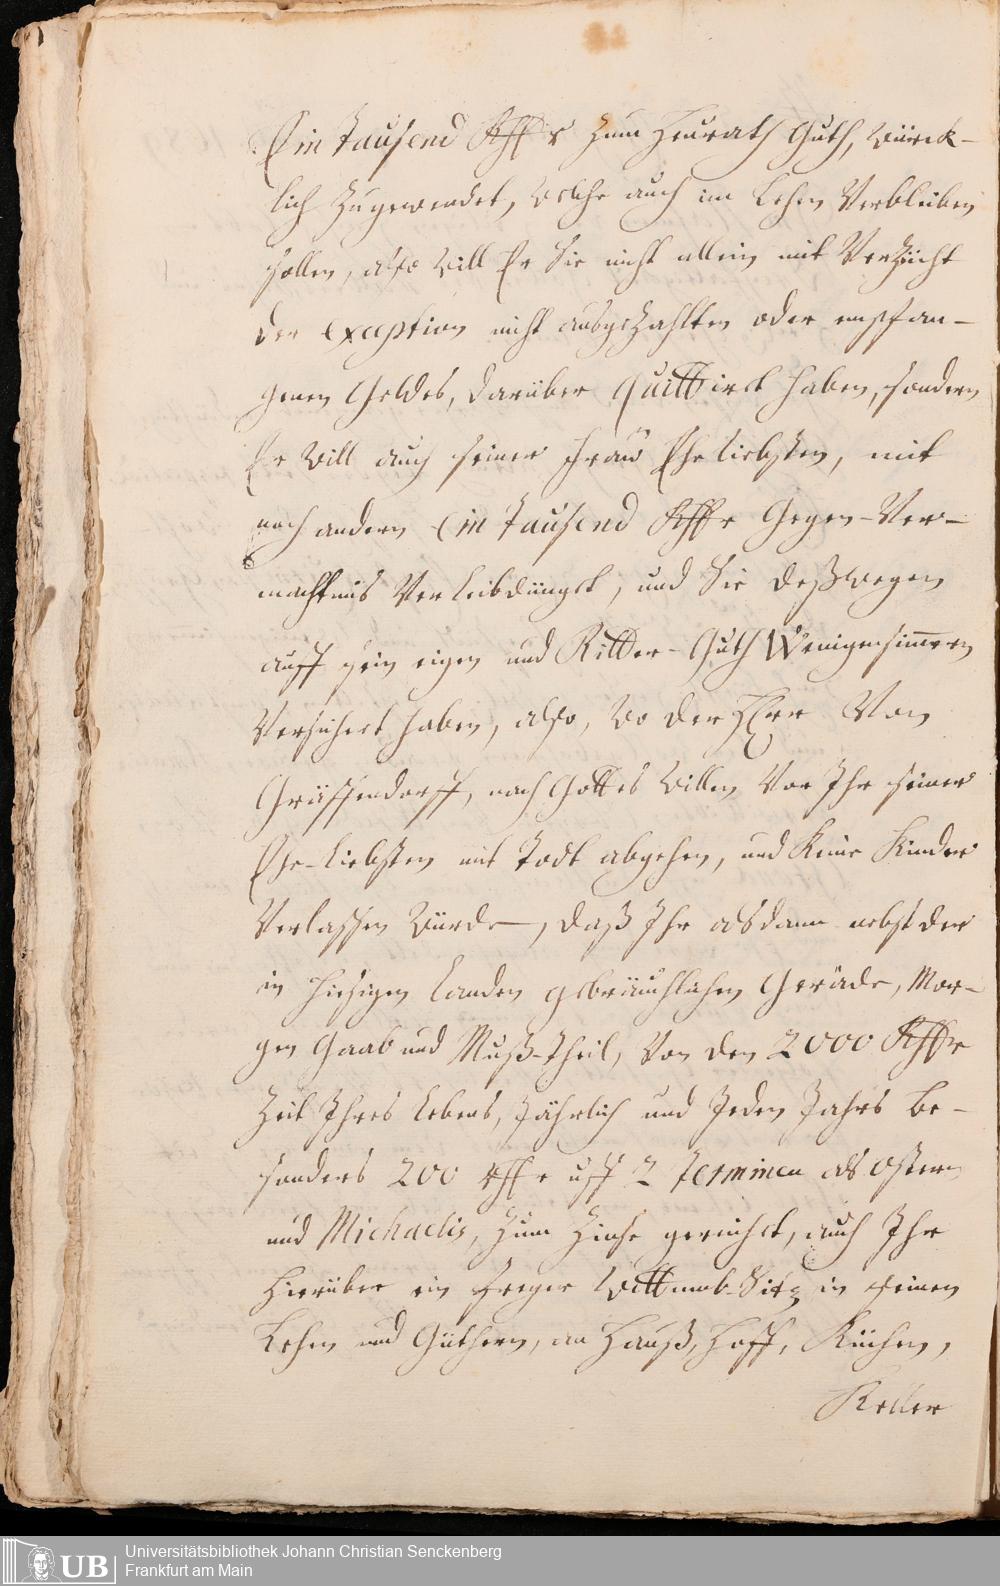 Ein Tausend Rthlr zum Heurath Guth, würck-
lich zugewendet, welche auch im Lehen Verbleiben
sollen, also will Er Sie nicht allein mit Verzicht
der exception nicht ausgezahlten oder empfan-
genen Geldes, darüber quittiret haben, sondern
Er will auch seiner Frau Eheliebsten, mit
noch andern Ein Tausend Rthlr Gegen-Ver-
mächtnis Verleibdüngt, und Sie deßwegen
auff sein eigen und Ritter-Guth Wenigensimmern
Versichert haben, also, wo der Herr Von
Gräffendorff, nach Gottes Willen Vor Ihr seiner
Ehe-Liebsten mit Todt abgehen, und Keine Kinder
Verlassen Würde, daß Ihr alsdann nebst der
in hiesigen Landen gebräuchlichen Geräde, Mor-
gen Gaab und Muß-Theil, Von den 2000 Rthlr
Zeit Ihres Lebens, Jährlich und Jeden Jahrs Be-
sonders 200 Rthlr uff 2 Terminen als Ostern
und Michaelis, zum Zinse gereichet, auch Ihr
hierüber ein freyer Wittumb-Sitz in seinen
Lehen und Güthern, an Hauß, Hoff, Küchen,
Keller
Universitätsbibliothek Johann Christian Senckenberg
UB Frankfurt am Main